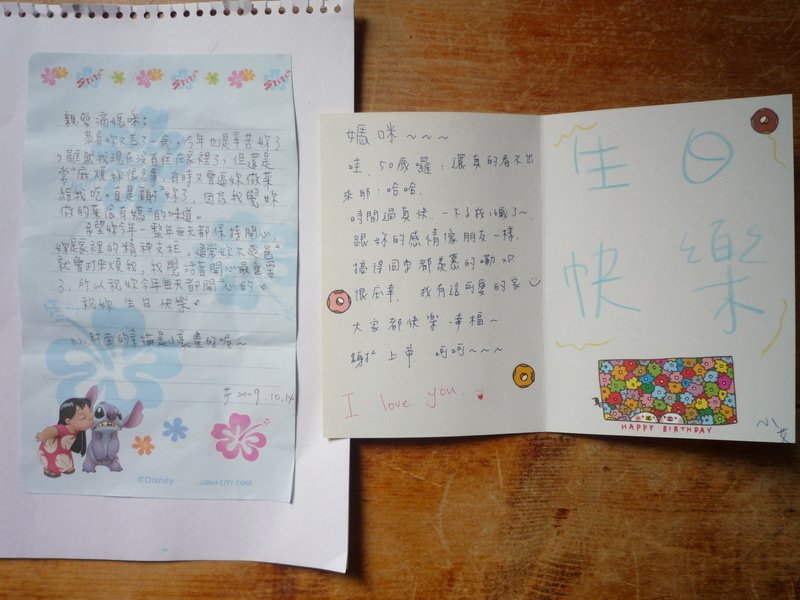 Stitch Stitch Stitch
親愛滴媽咪：
恭喜妳又老了一歲，今年也是辛苦妳了
，雖然我現在沒有住在家裡了，但還是
常麻煩妳
有時又會逼妳做菜
給我吃，真是謝謝妳了，因為我覺妳
做的菜很有媽媽的味道。
希望妳今年一整年每天都保持開心，
妳是家裡的精神支柱，通常妳不爽爸爸
就會打來煩我，我覺活著開心最重要
了，所以祝妳今年每天都開心的。
祝妳 生日快樂。
封面的素描是我畫的喔～
芳 2009.10.14
©Disney JAPAN CITY CORP.
媽咪～～～
哇，50歲囉，還真的看不出
來耶！哈哈，
時間過真快，一下子我
歲了～
跟妳的感情像朋友一樣，
搞得同學都羨慕的嘞 xD
很庆幸，我有這可愛的家
大家都快樂、幸福～
謝謝上帝 呵呵～～～
I love you.
生日
快樂
HAPPY BIRTHDAY
小艾